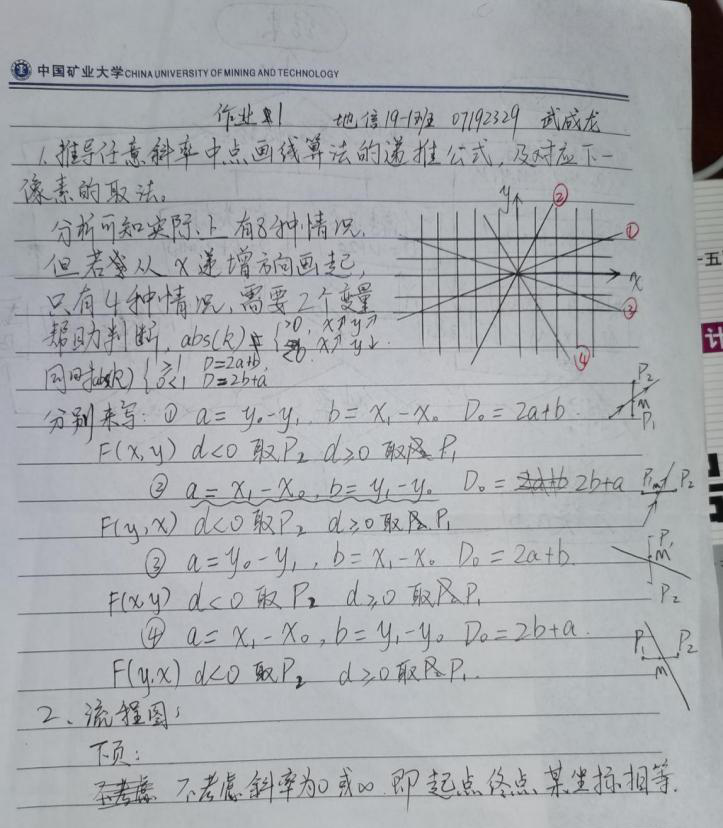 中国矿业大学 CHINA UNIVERSITY OF MINING AND TECHNOLOGY
作业1 地信19-1班 07192329 武成龙
1、推导任意斜率中点画线算法的递推公式，及对应下一
像素的取法。
分析可知实际上有8种情况，
但若从x递增方向画起，
只有4种情况，需要2个变量
帮助判断，abs(k) { >0, x↗ y↗
<0, x↗ y↓.
同时abs(k) { ≥1 D=2a+b,
<1, D=2b+a
分别来写：① a=y₀-y₁, b=x₁-x₀ D₀=2a+b.
F(x,y) d<0 取P₂ d≥0 取P₁
② a=x₁-x₀, b=y₁-y₀ D₀=2b+a
F(y,x) d<0取P₂ d≥0取P₁
③ a=y₀-y₁, b=x₁-x₀ D₀=2a+b.
F(x,y) d<0 取P₂ d≥0 取P₁
④ a=x₁-x₀, b=y₁-y₀ D₀=2b+a.
F(y,x) d<0 取P₂ d≥0取P₁.
2、流程图：
下页：
不考虑斜率为0或∞ 即起点终点某坐标相等.
y
x
①
②
③
④
P₂
M
P₁
P₁ M P₂
P₁
M
P₂
P₁ P₂
M
五
计